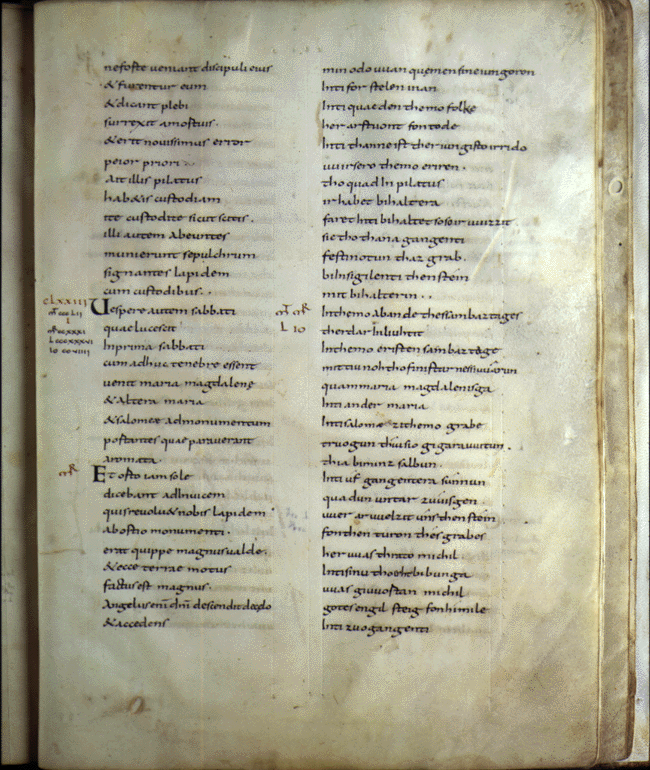 ne forte veniant discipuli eius
& furentur eum
& dicant plebi
surrexit amortuis.
& erit novissimus error
peior priori.
Ait illis pilatus
hab&is custodiam
ite custodite sicut scitis.
illi autem abeuntes
munierunt sepulchrum
signantes lapidem
cum custodibus.
CLXXIII
Uespere autem sabbati
quae lucescit
In prima sabbati
cum adhuc tenebre essent
venit maria magdalene
& altera maria
& salomae ad monumentum
portantes quae paraverant
aromata.
Et orto iam sole
dicebant adInvicem
quis revolv& nobis lapidem
ab ostio monumenti.
erat quippe magnus valde.
& ecce terrae motus
factus est magnus.
Angelus eni dni descendit de celo
& accedens
min odo uuan quemen sine iungoron
Inti for stelen inan
Inti quaeden themo folke
her arstuont fon tode
Inti thanne ist ther iungisto irrido
uuirsero themo eriren.
tho quad In pilatus
ir habet bihaltera
faret Inti bihaltet soso ir uuizzit
sie tho thana gangenti
festinotun thaz grab.
biInsigilenti then stein
mit bihalterin.
In themo abande thes sambaztages
ther dar In liuhtit
In themo eristen sambaztage
mit thiu noh tho finstarnessi uuarun
quam maria magdalenisga
Inti ander maria
Inti salomae zi themo grabe
truogun thiu sio gigarauuitun.
thia biminz salbun.
Inti uf gangentera sunnun
quadun untar zuuisgen.
uuer aruuelzit uns then stein
fon then turon thes grabes
her uuas thrato michil
Inti sinu tho erthbibunga
uuas giuuortan michil
gotes engil steig fon himile
Inti zuogangenti